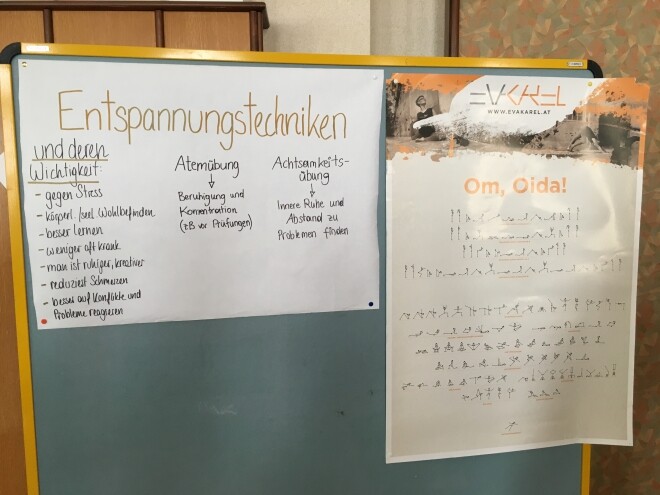 Entspannungstechniken
und deren
Wichtigkeit:
- gegen Stress
- körperl./seel. Wohlbefinden
- besser lernen
- weniger oft krank
- man ist ruhiger, kreativer
- reduziert Schmerzen
- besser auf Konflikte und
Probleme reagieren
Atemübung
↓
Beruhigung und
Konzentration
(zB vor Prüfungen)
Achtsamkeits-
übung
↓
Innere Ruhe und
Abstand zu
Problemen finden
EVAKAREL
WWW.EVAKAREL.AT
Om, Oida!